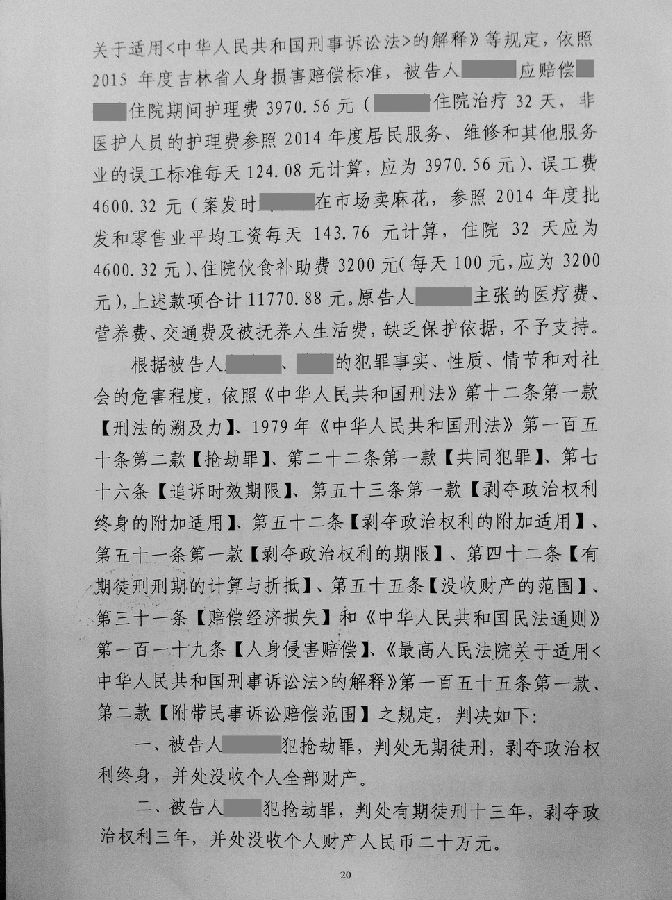 关于适用<中华人民共和国刑事诉讼法>的解释》等规定，依照
2015 年度吉林省人身损害赔偿标准，被告人应赔偿
住院期间护理费 3970.56 元（住院治疗 32 天，非
医护人员的护理费参照 2014 年度居民服务、维修和其他服务
业的误工标准每天 124.08 元计算，应为 3970.56 元）、误工费
4600.32 元（案发时在市场卖麻花，参照 2014 年度批
发和零售业平均工资每天 143.76 元计算，住院 32 天应为
4600.32 元）、住院伙食补助费 3200 元（每天 100 元，应为 3200
元），上述款项合计 11770.88 元。原告人主张的医疗费、
营养费、交通费及被抚养人生活费，缺乏保护依据，不予支持。
根据被告人、的犯罪事实、性质、情节和对社
会的危害程度，依照《中华人民共和国刑法》第十二条第一款
【刑法的溯及力】、1979 年《中华人民共和国刑法》第一百五
十条第二款【抢劫罪】、第二十二条第一款【共同犯罪】、第七
十六条【追诉时效期限】、第五十三条第一款【剥夺政治权利
终身的附加适用】、第五十二条【剥夺政治权利的附加适用】、
第五十一条第一款【剥夺政治权利的期限】、第四十二条【有
期徒刑刑期的计算与折抵】、第五十五条【没收财产的范围】、
第三十一条【赔偿经济损失】和《中华人民共和国民法通则》
第一百一十九条【人身侵害赔偿】、《最高人民法院关于适用<
中华人民共和国刑事诉讼法>的解释》第一百五十五条第一款、
第二款【附带民事诉讼赔偿范围】之规定，判决如下：
一、被告人犯抢劫罪，判处无期徒刑，剥夺政治权
利终身，并处没收个人全部财产。
二、被告人犯抢劫罪，判处有期徒刑十三年，剥夺政
治权利三年，并处没收个人财产人民币二十万元。
20